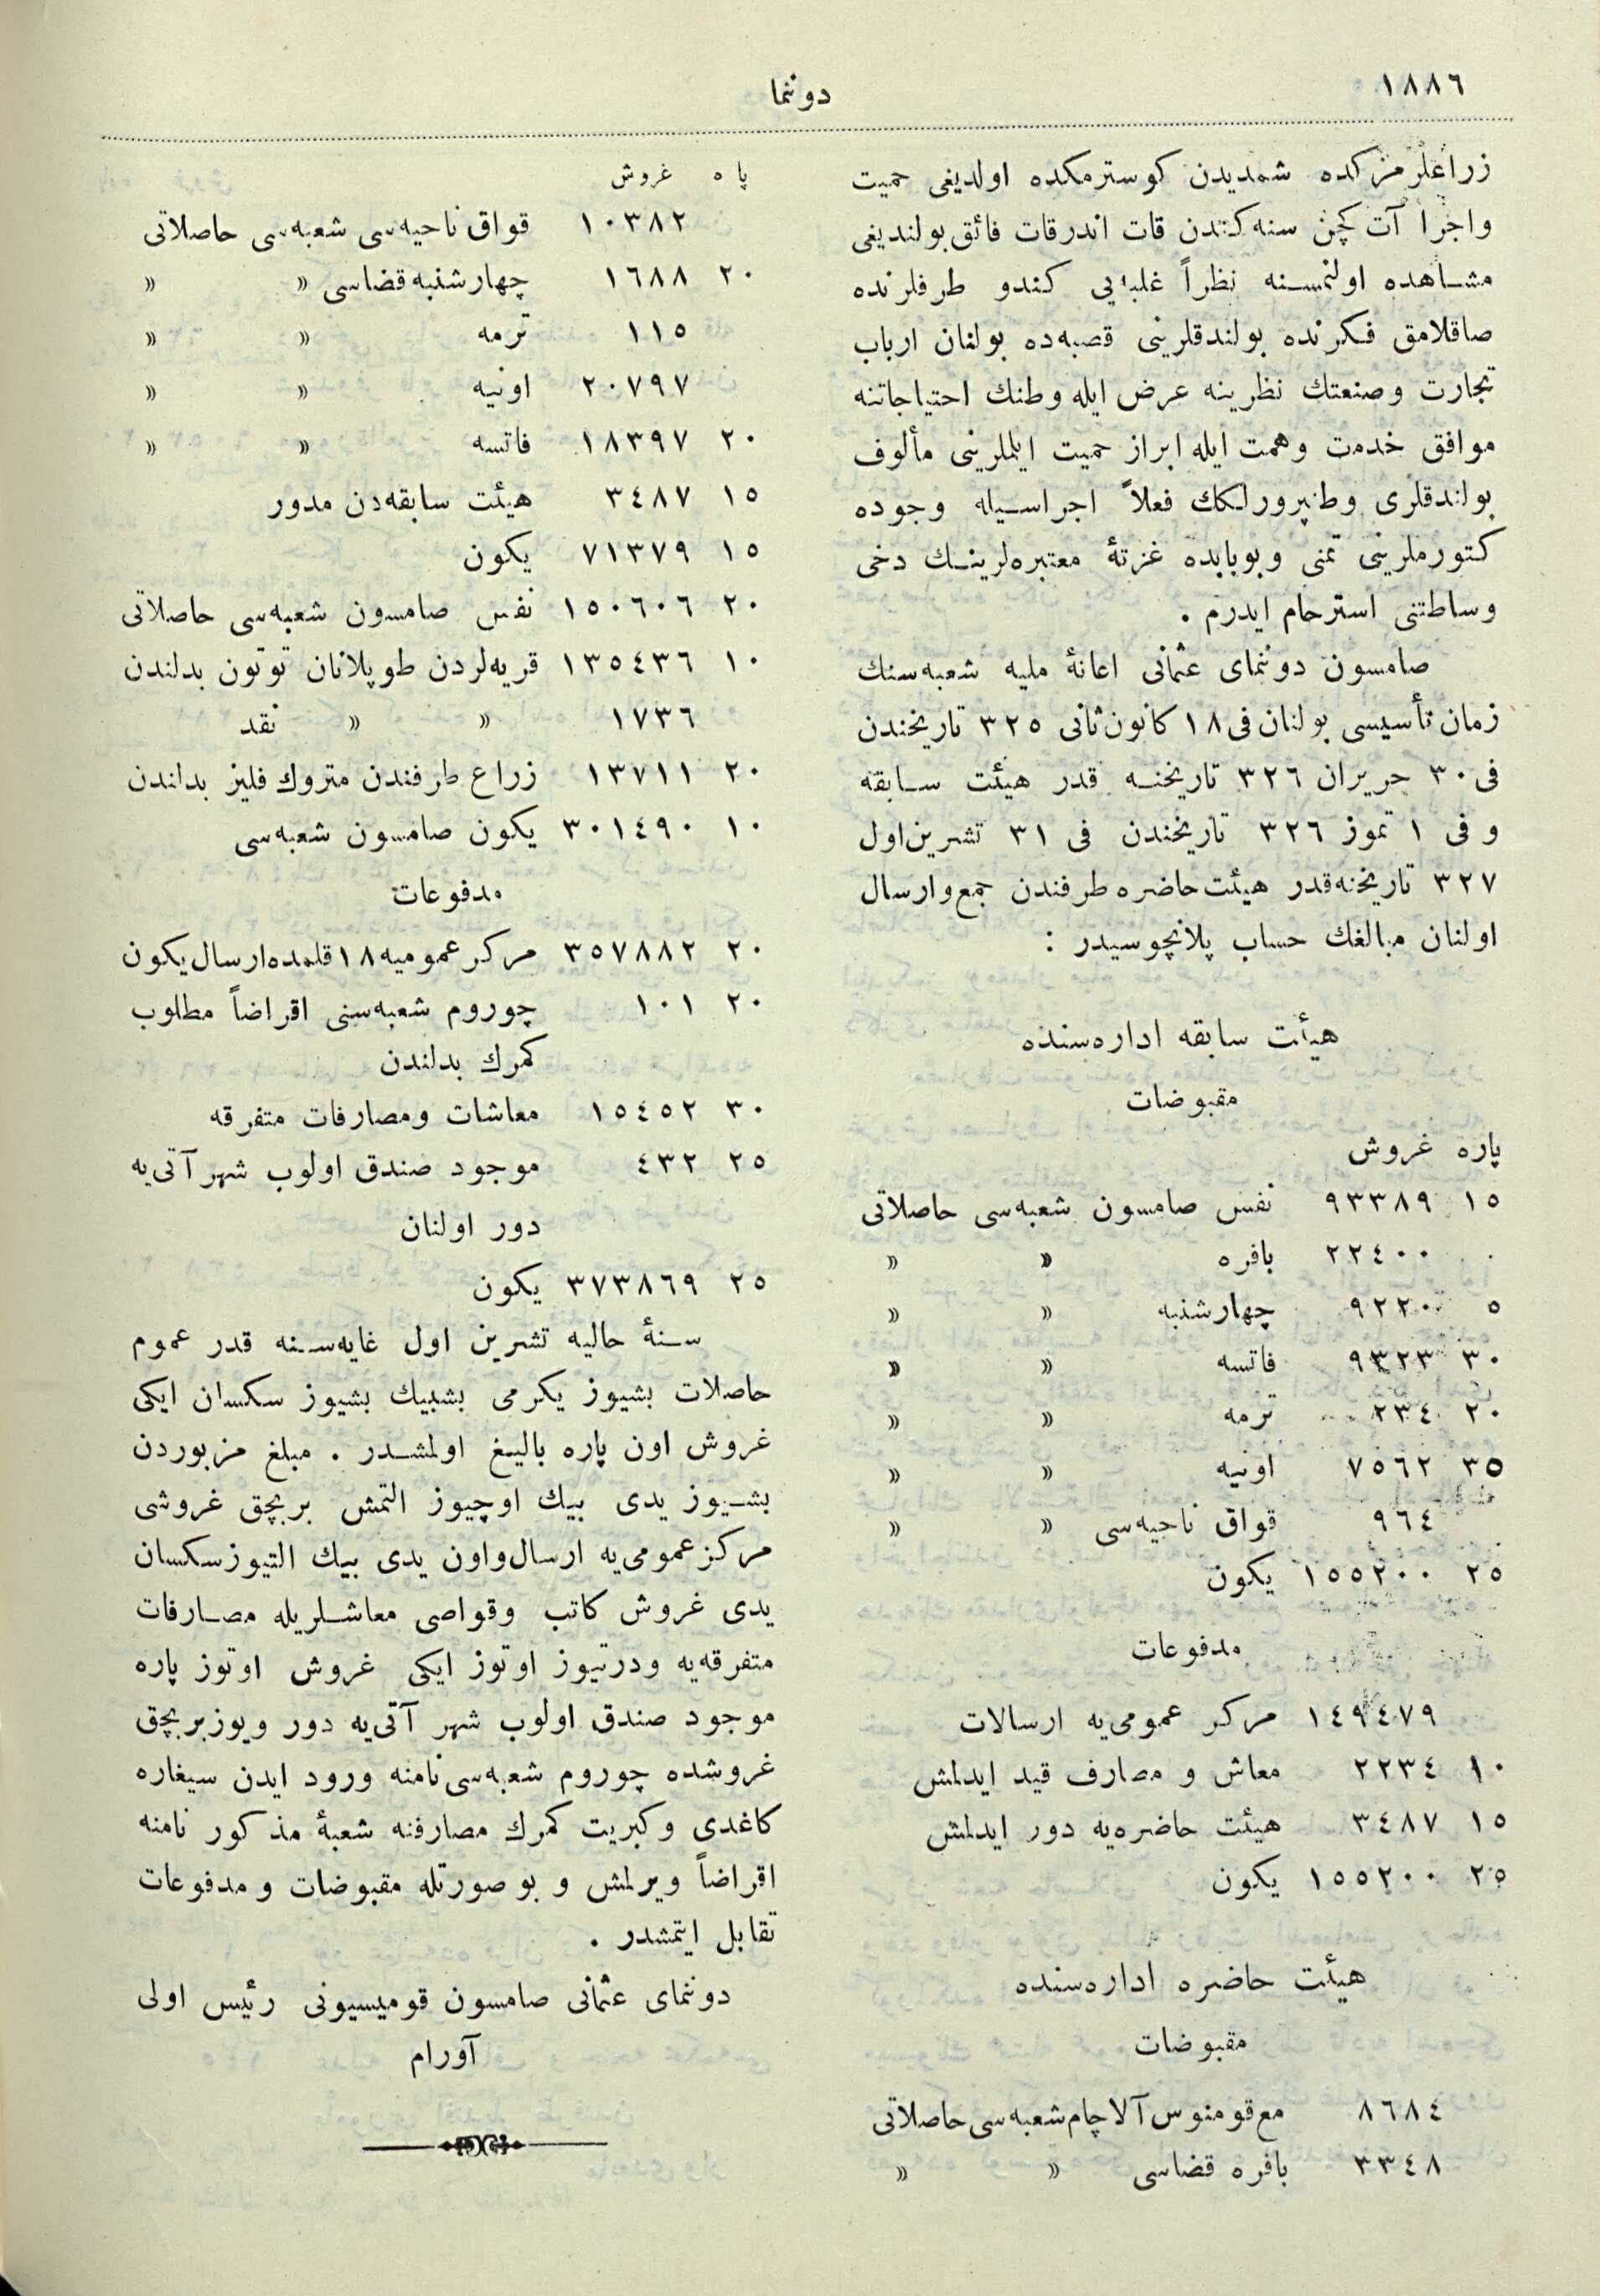 ١٨٨٦
دوننما
زراعلرمزكده شمديدن كوسترمكده اولديغى حميت
واجرا آت كچن سنه كندن قات اندرقات فائق بولنديغى
مشاهده اولنمسنه نظراً غلبه يى كندو طرفلرنده
صاقلامق فكرنده بولندقلرينى قصبه ده بولنان ارباب
تجارت وصنعتك نظرينه عرض ايله وطنك احتياجاتنه
موافق خدمت وهمت ايله ابراز حميت ايلملرينى مألوف
بولندقلرى وطنپرورلكك فعلاً اجراسيله وجوده
كتورملرينى تمنى وبوبابده غزتهٔ معتبره لرينك دخى
وساطتنى استرحام ايدرم .
صامسون دوننماى عثمانى اعانهٔ مليه شعبه سنك
زمان تأسيسى بولنان فى ١٨ كانون ثانى ٣٢٥ تاريخندن
فى ٣٠ حزيران ٣٢٦ تاريخنه قدر هيئت سابقه
و فى ١ تموز ٣٢٦ تاريخندن فى ٣١ تشرين اول
٣٢٧ تاريخنه قدر هيئت حاضره طرفندن جمع وارسال
اولنان مبالغك حساب پلانچوسيدر :
هيئت سابقه اداره سنده
مقبوضات
پاره غروش
١٥ ٩٣٣٨٩ نفس صامسون شعبه سى حاصلاتى
٠ ٢٢٤٠٠ بافره » »
٥ ٩٢٢٠ چهارشنبه » »
٣٠ ٩٣٢٣ فاتسه » »
٢٠ ٢٣٤ ترمه » »
٣٥ ٧٥٦٢ اونيه » »
٩٦٤ قواق ناحيه سى » »
٢٥ ١٥٥٢٠٠ يكون
مدفوعات
١٤٩٤٧٩ مركز عمومى يه ارسالات
١٠ ٢٢٣٤ معاش و مصارف قيد ايدلمش
١٥ ٣٤٨٧ هيئت حاضره يه دور ايدلمش
٢٥ ١٥٥٢٠٠ يكون
هيئت حاضره اداره سنده
مقبوضات
٨٦٨٤ مع قومنوس آلاچام شعبه سى حاصلاتى
٣٣٤٨ بافره قضاسى » »
پاره غروش
١٠٣٨٢ قواق ناحيه سى شعبه سى حاصلاتى
٢٠ ١٦٨٨ چهارشنبه قضاسى » »
١١٥ ترمه » »
٢٠٧٩٧ اونيه » »
٢٠ ١٨٣٩٧ فاتسه » »
١٥ ٣٤٨٧ هيئت سابقه دن مدور
١٥ ٧١٣٧٩ يكون
٢٠ ١٥٠٦٠٦ نفس صامسون شعبه سى حاصلاتى
١٠ ١٣٥٤٣٦ قريه لردن طوپلانان توتون بدلندن
١٧٣٦ » » نقد
٢٠ ١٣٧١١ زراع طرفندن متروك فليز بدلندن
١٠ ٣٠١٤٩٠ يكون صامسون شعبه سى
مدفوعات
٢٠ ٣٥٧٨٨٢ مركز عموميه ١٨ قلمده ارسال يكون
٢٠ ١٠١ چوروم شعبه سنى اقراضاً مطلوب
كمرك بدلندن
٣٠ ١٥٤٥٢ معاشات ومصارفات متفرقه
٢٥ ٤٣٢ موجود صندق اولوب شهر آتى يه
دور اولنان
٢٥ ٣٧٣٨٦٩ يكون
سنهٔ حاليه تشرين اول غايه سنه قدر عموم
حاصلات بشيوز يكرمى بشبيك بشيوز سكسان ايكى
غروش اون پاره باليغ اولمشدر . مبلغ مزبوردن
بشيوز يدى بيك اوچيوز التمش بربچق غروشى
مركز عمومى يه ارسال واون يدى بيك التيوز سكسان
يدى غروش كاتب وقواصى معاشلريله مصارفات
متفرقه يه ودرتيوز اوتوز ايكى غروش اوتوز پاره
موجود صندق اولوب شهر آتى يه دور ويوز بربچق
غروشده چوروم شعبه سى نامنه ورود ايدن سيغاره
كاغدى وكبريت كمرك مصارفنه شعبهٔ مذكور نامنه
اقراضاً ويرلمش و بو صورتله مقبوضات و مدفوعات
تقابل ايتمشدر .
دوننماى عثمانى صامسون قوميسيونى رئيس اولى
آورام